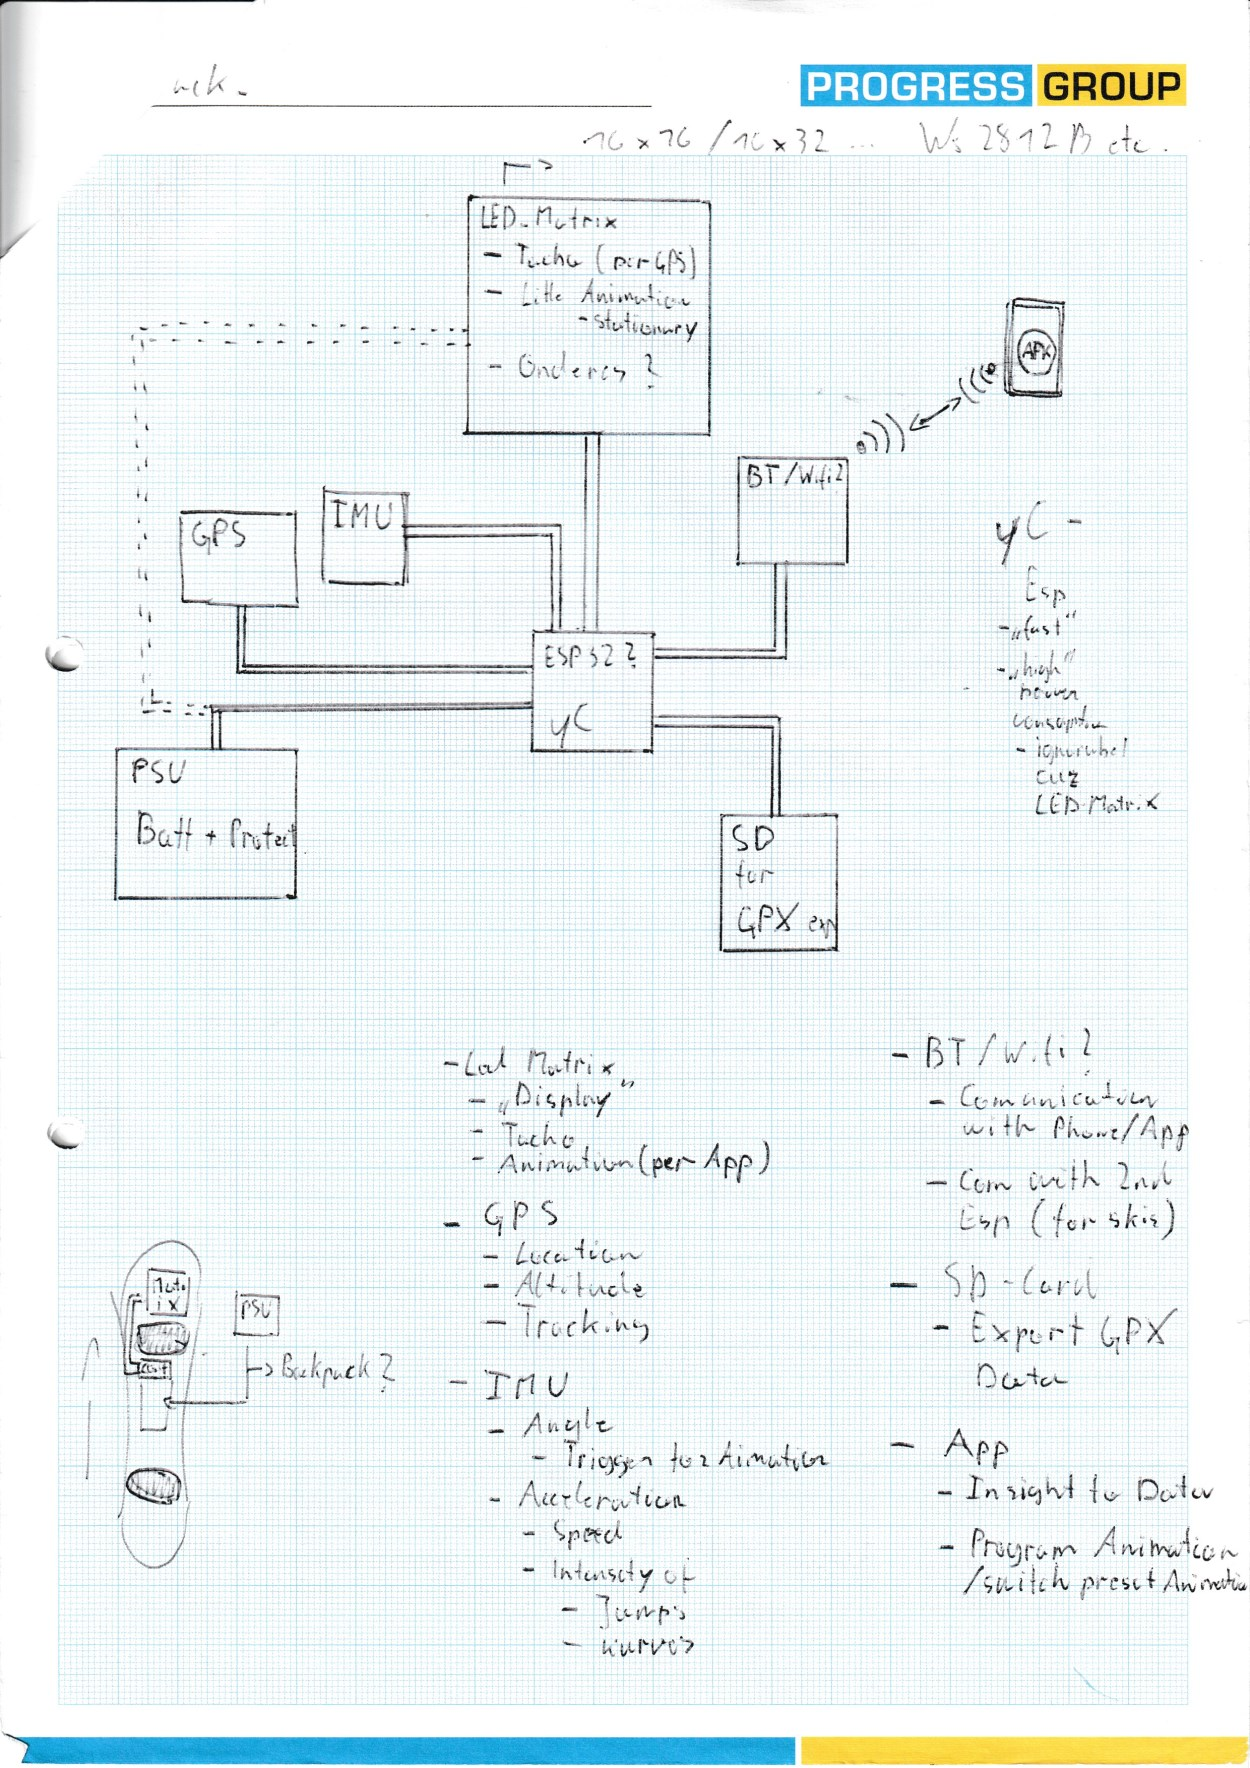 PROGRESS GROUP
16x16 / 16x32 ... Ws2812B etc.
LED-Matrix
- Tacho (per GPS)
- Little Animation
- stationary
- Onderes ?
APK
BT/Wifi?
GPS
IMU
µC -
Esp
- „fast"
- „high"
power
- ignorabel
cuz
LED-Matrix
ESP32 ?
µC
PSU
Batt + Protect
SD
for
GPX exp
- Led Matrix
- „Display"
- Tacho
- Animation (per App)
- GPS
- Location
- Altitude
- Tracking
- IMU
- Angle
- Trigger for Aimation
- Acceleration
- Speed
- Intensity of
- Jumps
- kurves
- BT/Wifi?
- Comunication
with Phone/App
- Com with 2nd
Esp (for skis)
- SD-Card
- Export GPX
Data
- App
- Insight to Data
- Program Animation
/switch preset Animation
Matr
ix
PSU
→ Backpack?